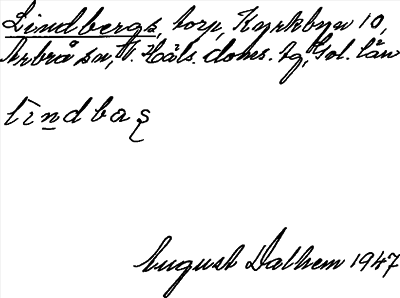 Lindbergs, torp, Kyrkbyn 10,
Arbrå sn, V. Häls. doms. tg, Gvl. län
lindbaş
August Dalhem 1947